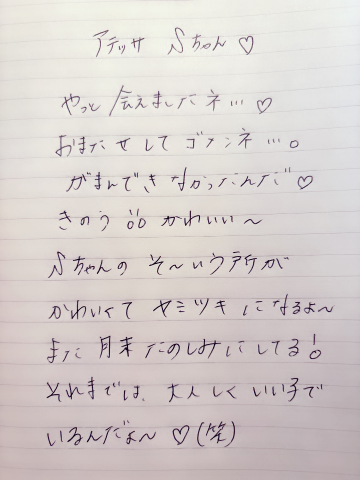 アテッサ Sちゃん♡
やっと会えましたネ…♡
おまたせしてゴメンネ…。
がまんできなかったんだ♡
きのうもかわいい〜
Sちゃんのそ〜いう所が
かわいくてヤミツキになるよ〜
また月末たのしみにしてる!
それまでは、大人しくいい子で
いるんだよ〜♡(笑)